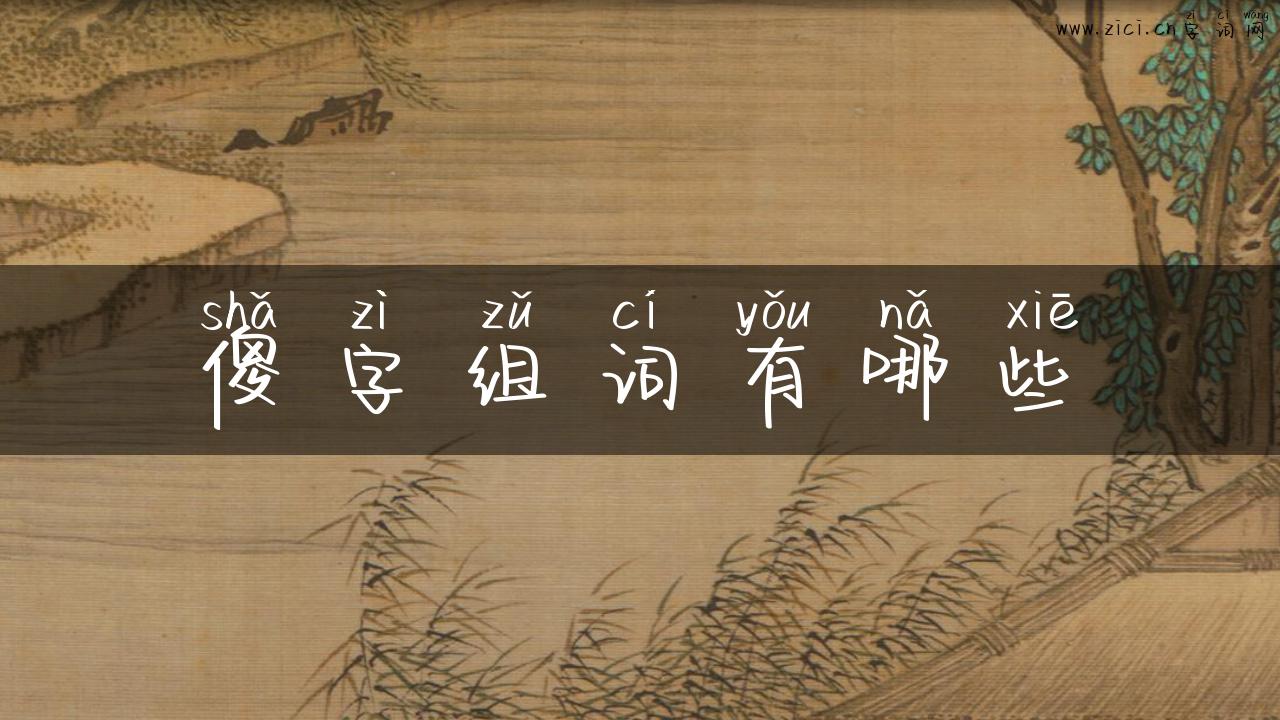 zì cí wǎng
www.zici.cn字词网
shǎ zì zǔ cí yǒu nǎ xiē
傻字组词有哪些